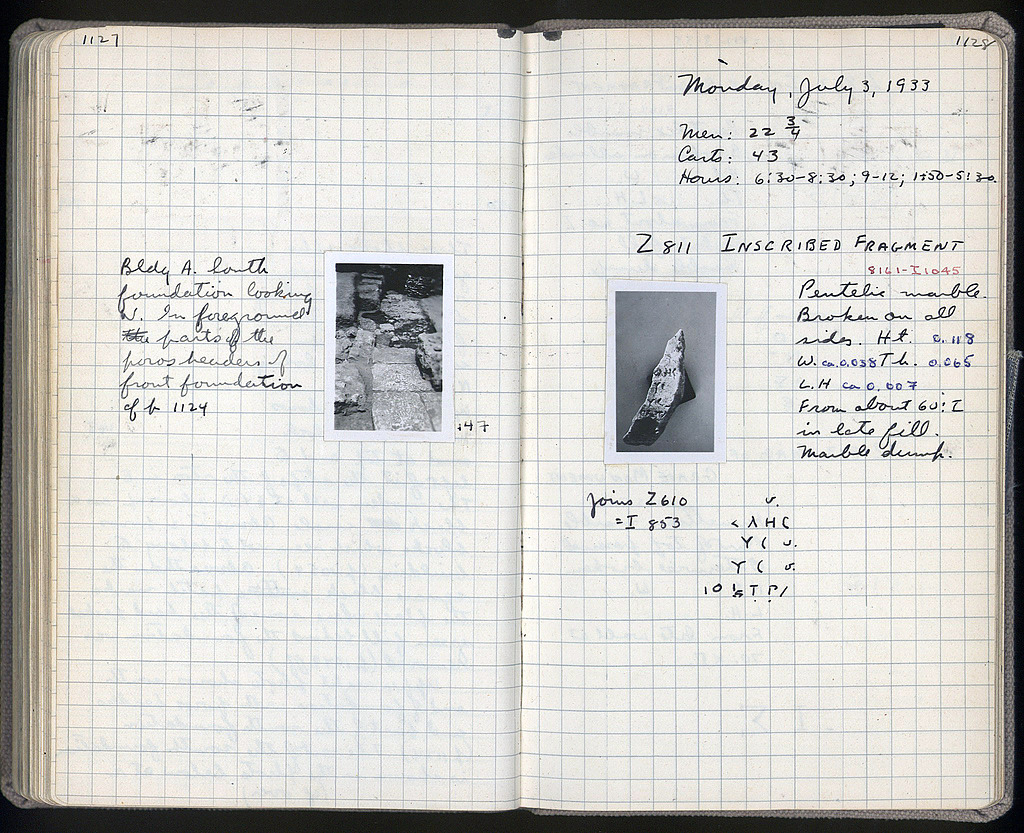 1127
Bldg A. South
foundation looking
W. In foreground
the parts of the
poros headers of
front foundation
cf p 1124
47
1128
Monday, July 3, 1933
Men: 22 3/4
Carts: 43
Hours: 6:30-8:30; 9-12; 1:30-5:30
Z 811 INSCRIBED FRAGMENT
8161-I 1045
Pentelic marble.
Broken on all
sides. Ht. 0.118
W. ca. 0.038 Th. 0.065
L.H ca 0.007
From about 60:I
in late fill.
Marble dump.
Joins Z 610
= I 853
v.
< Λ H (
Y ( v.
Y ( v.